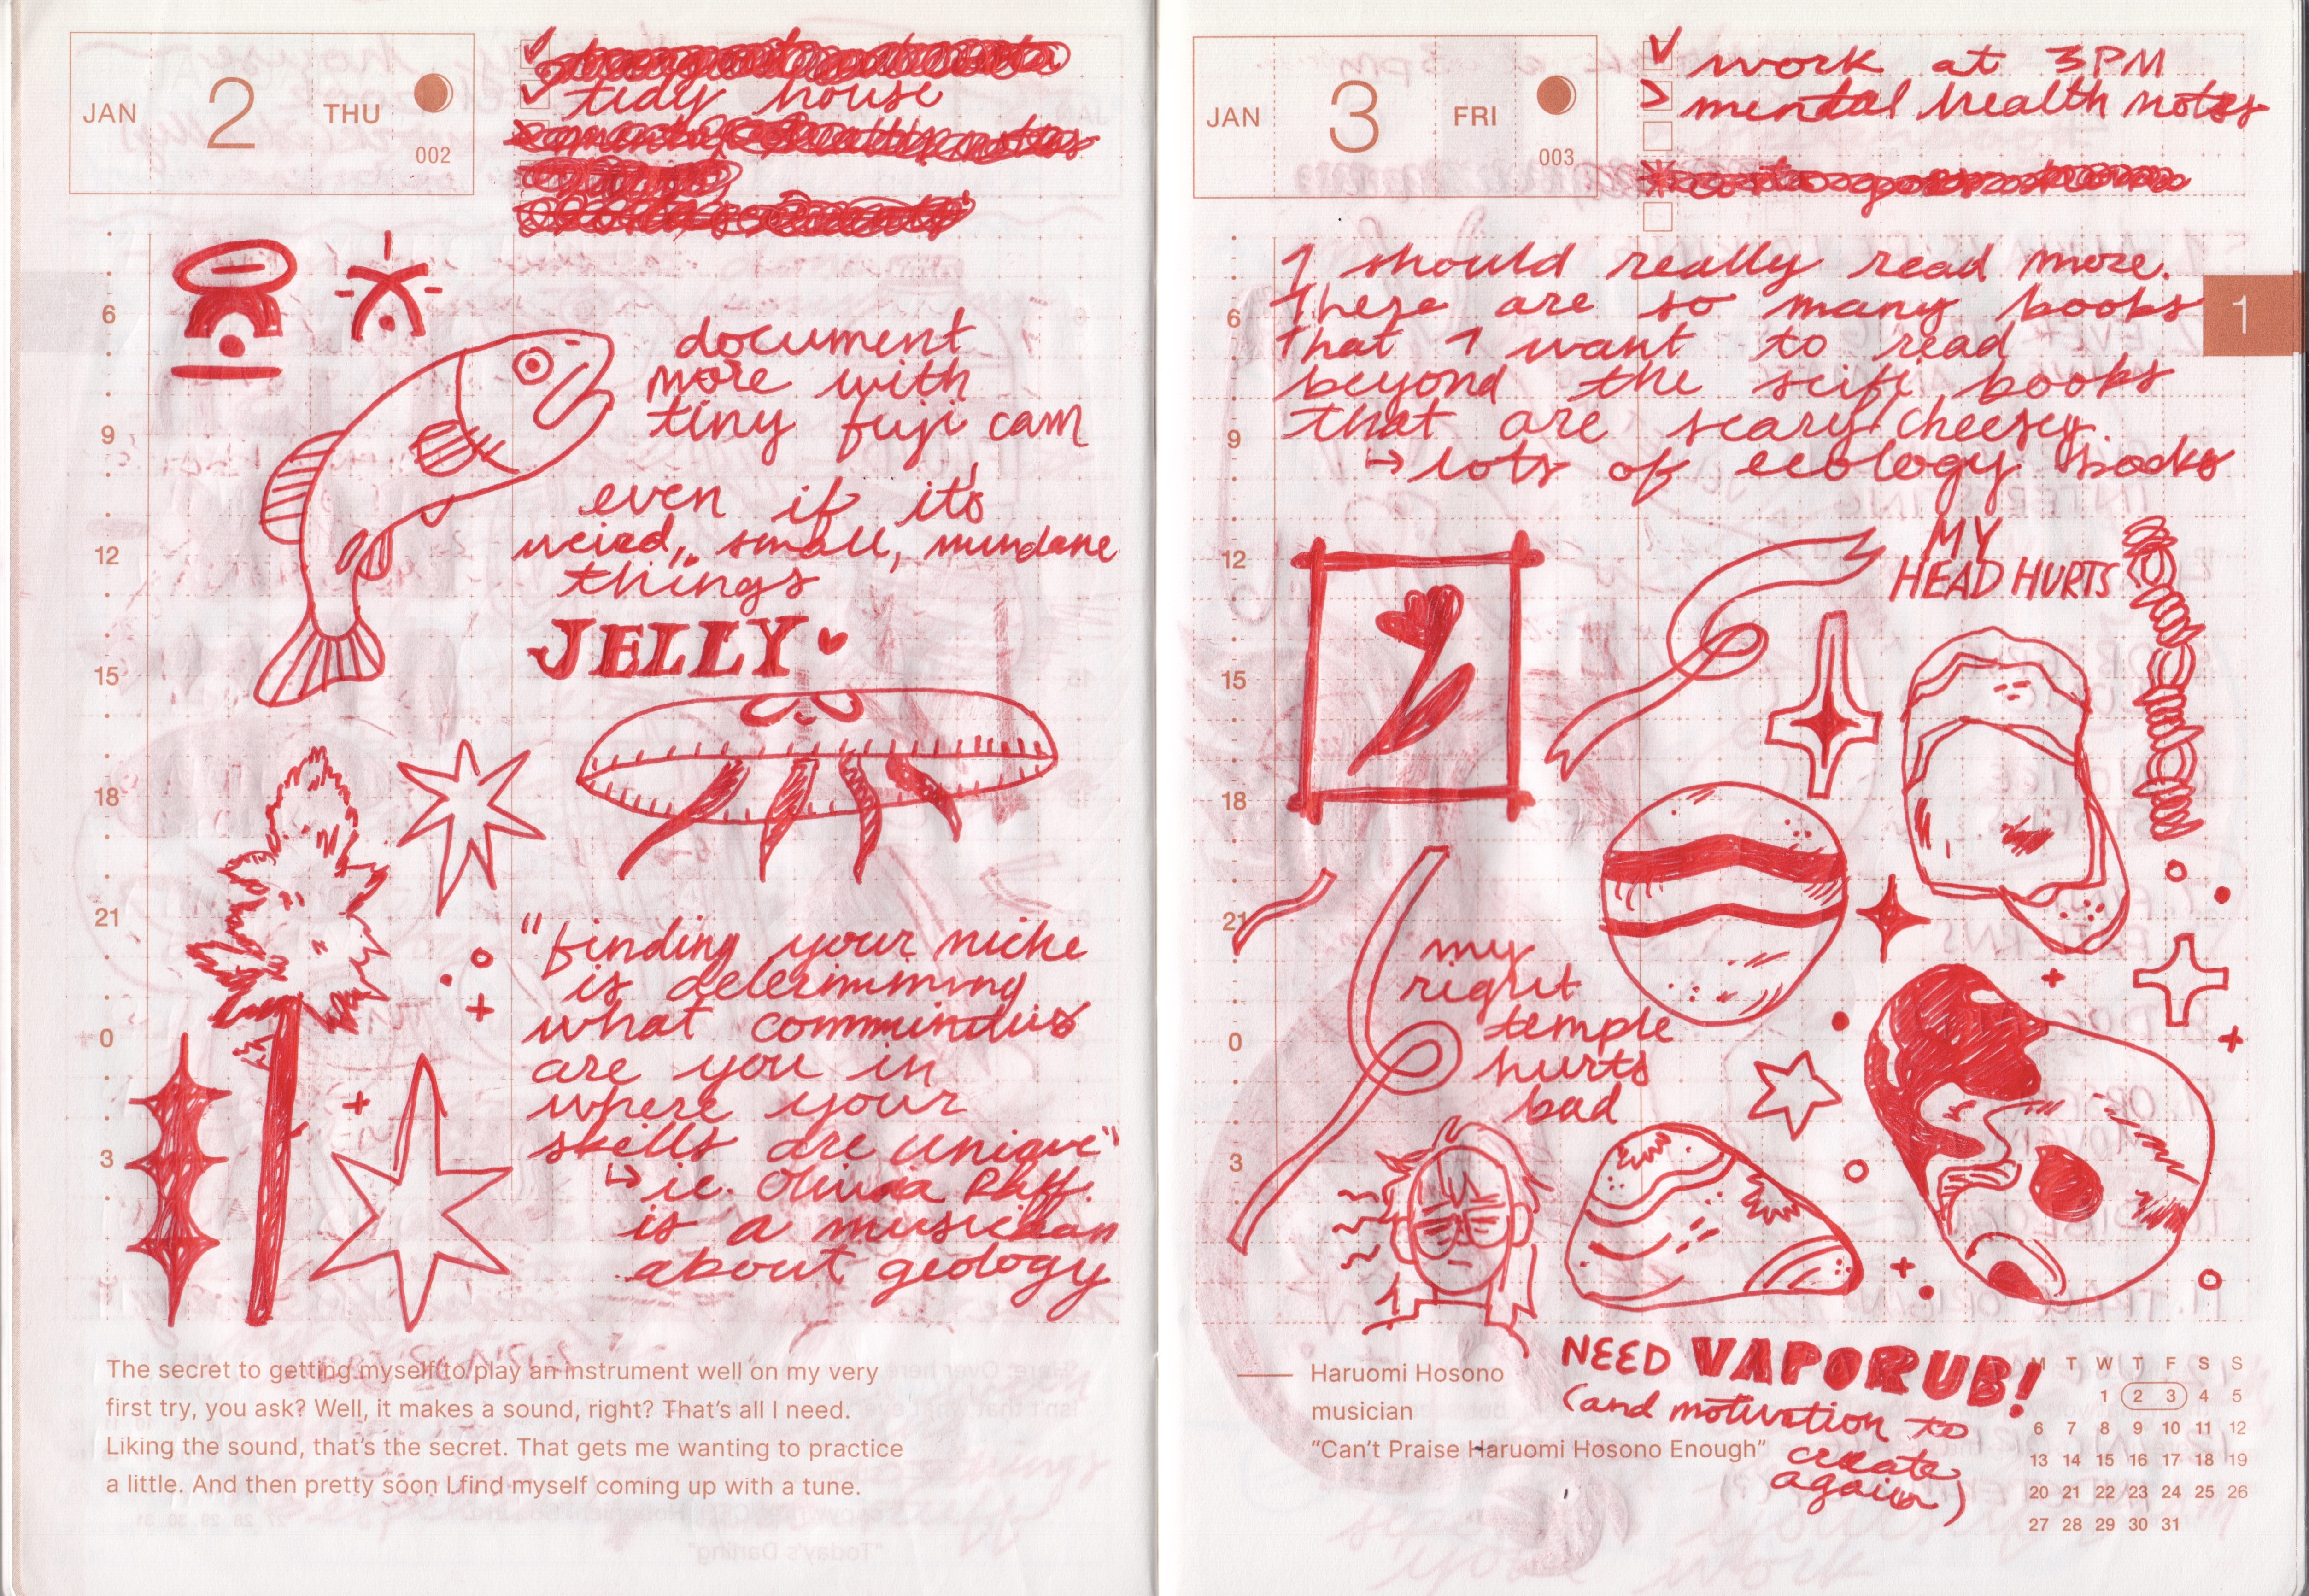 JAN 2 THU
002
tidy house
6
9
12
15
18
21
0
3
document
more with
tiny fuji cam
even if it's
weird, small, mundane
things
JELLY
"finding your niche
is determining
what communities
are you in
where your
skills are unique"
↳ ie. Olivia
is a musician
about geology
The secret to getting myself to play an instrument well on my very
first try, you ask? Well, it makes a sound, right? That's all I need.
Liking the sound, that's the secret. That gets me wanting to practice
a little. And then pretty soon I find myself coming up with a tune.
JAN 3 FRI
003
work at 3PM
mental health notes
1
6
9
12
15
18
21
0
3
I should really read more.
There are so many books
that I want to read
beyond the scifi books
that are scary/cheesey.
↳ lots of ecology books
MY
HEAD HURTS
my
right
temple
hurts
bad
NEED VAPORUB!
(and motivation to
create
again)
Haruomi Hosono
musician
"Can't Praise Haruomi Hosono Enough"
M T W T F S S
1 2 3 4 5
6 7 8 9 10 11 12
13 14 15 16 17 18 19
20 21 22 23 24 25 26
27 28 29 30 31